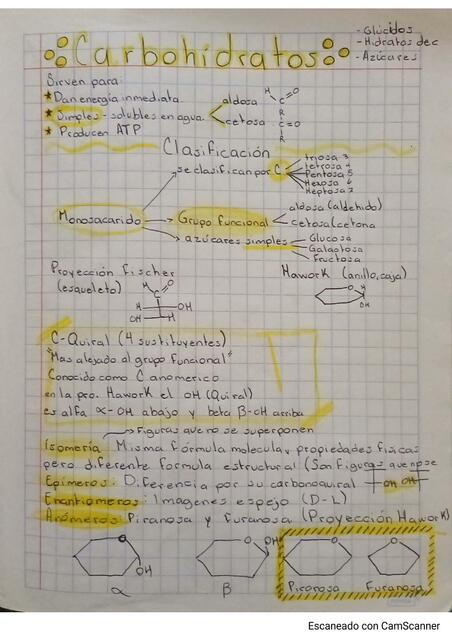 Carbohidratos
- Glúcidos
- Hidratos de c
- Azúcares
Sirven para:
★ Dan energía inmediata
★ Simples - solubles en agua
★ Producen ATP
aldosa
H C O
R
cetosa
R
C=O
R
Clasificación
se clasifican por C
triosa 3
tetrosa 4
Pentosa 5
Hexosa 6
Heptosa 7
Monosacarido
Grupo funcional
aldosa (aldehido)
cetosa (cetona
azúcares simples
Glucosa
Galactosa
Fructosa
Proyección fischer
(esqueleto)
H C O
OH
OH H
Hawork (anillo, caja)
H
OH
C-Quiral (4 sustituyentes)
"Mas alejado al grupo funcional"
Conocido como C anomerico
en la pro. Hawork el OH (Quiral)
es alfa α-OH abajo y beta β-OH arriba
Figuras que no se superponen
Isomería: Misma fórmula molecular, propiedades fisicas
pero diferente formula estructural (Son figuras que no se
Epímeros: Diferencia por su carbonoquiral
OH OH
Enantiomeros: Imagenes espejo (D-L)
Anómeros: Piranosa y furanosa (Proyección Hawork)
O
OH
α
O
OH
β
O
Piranosa
O
Furanosa
Escaneado con CamScanner